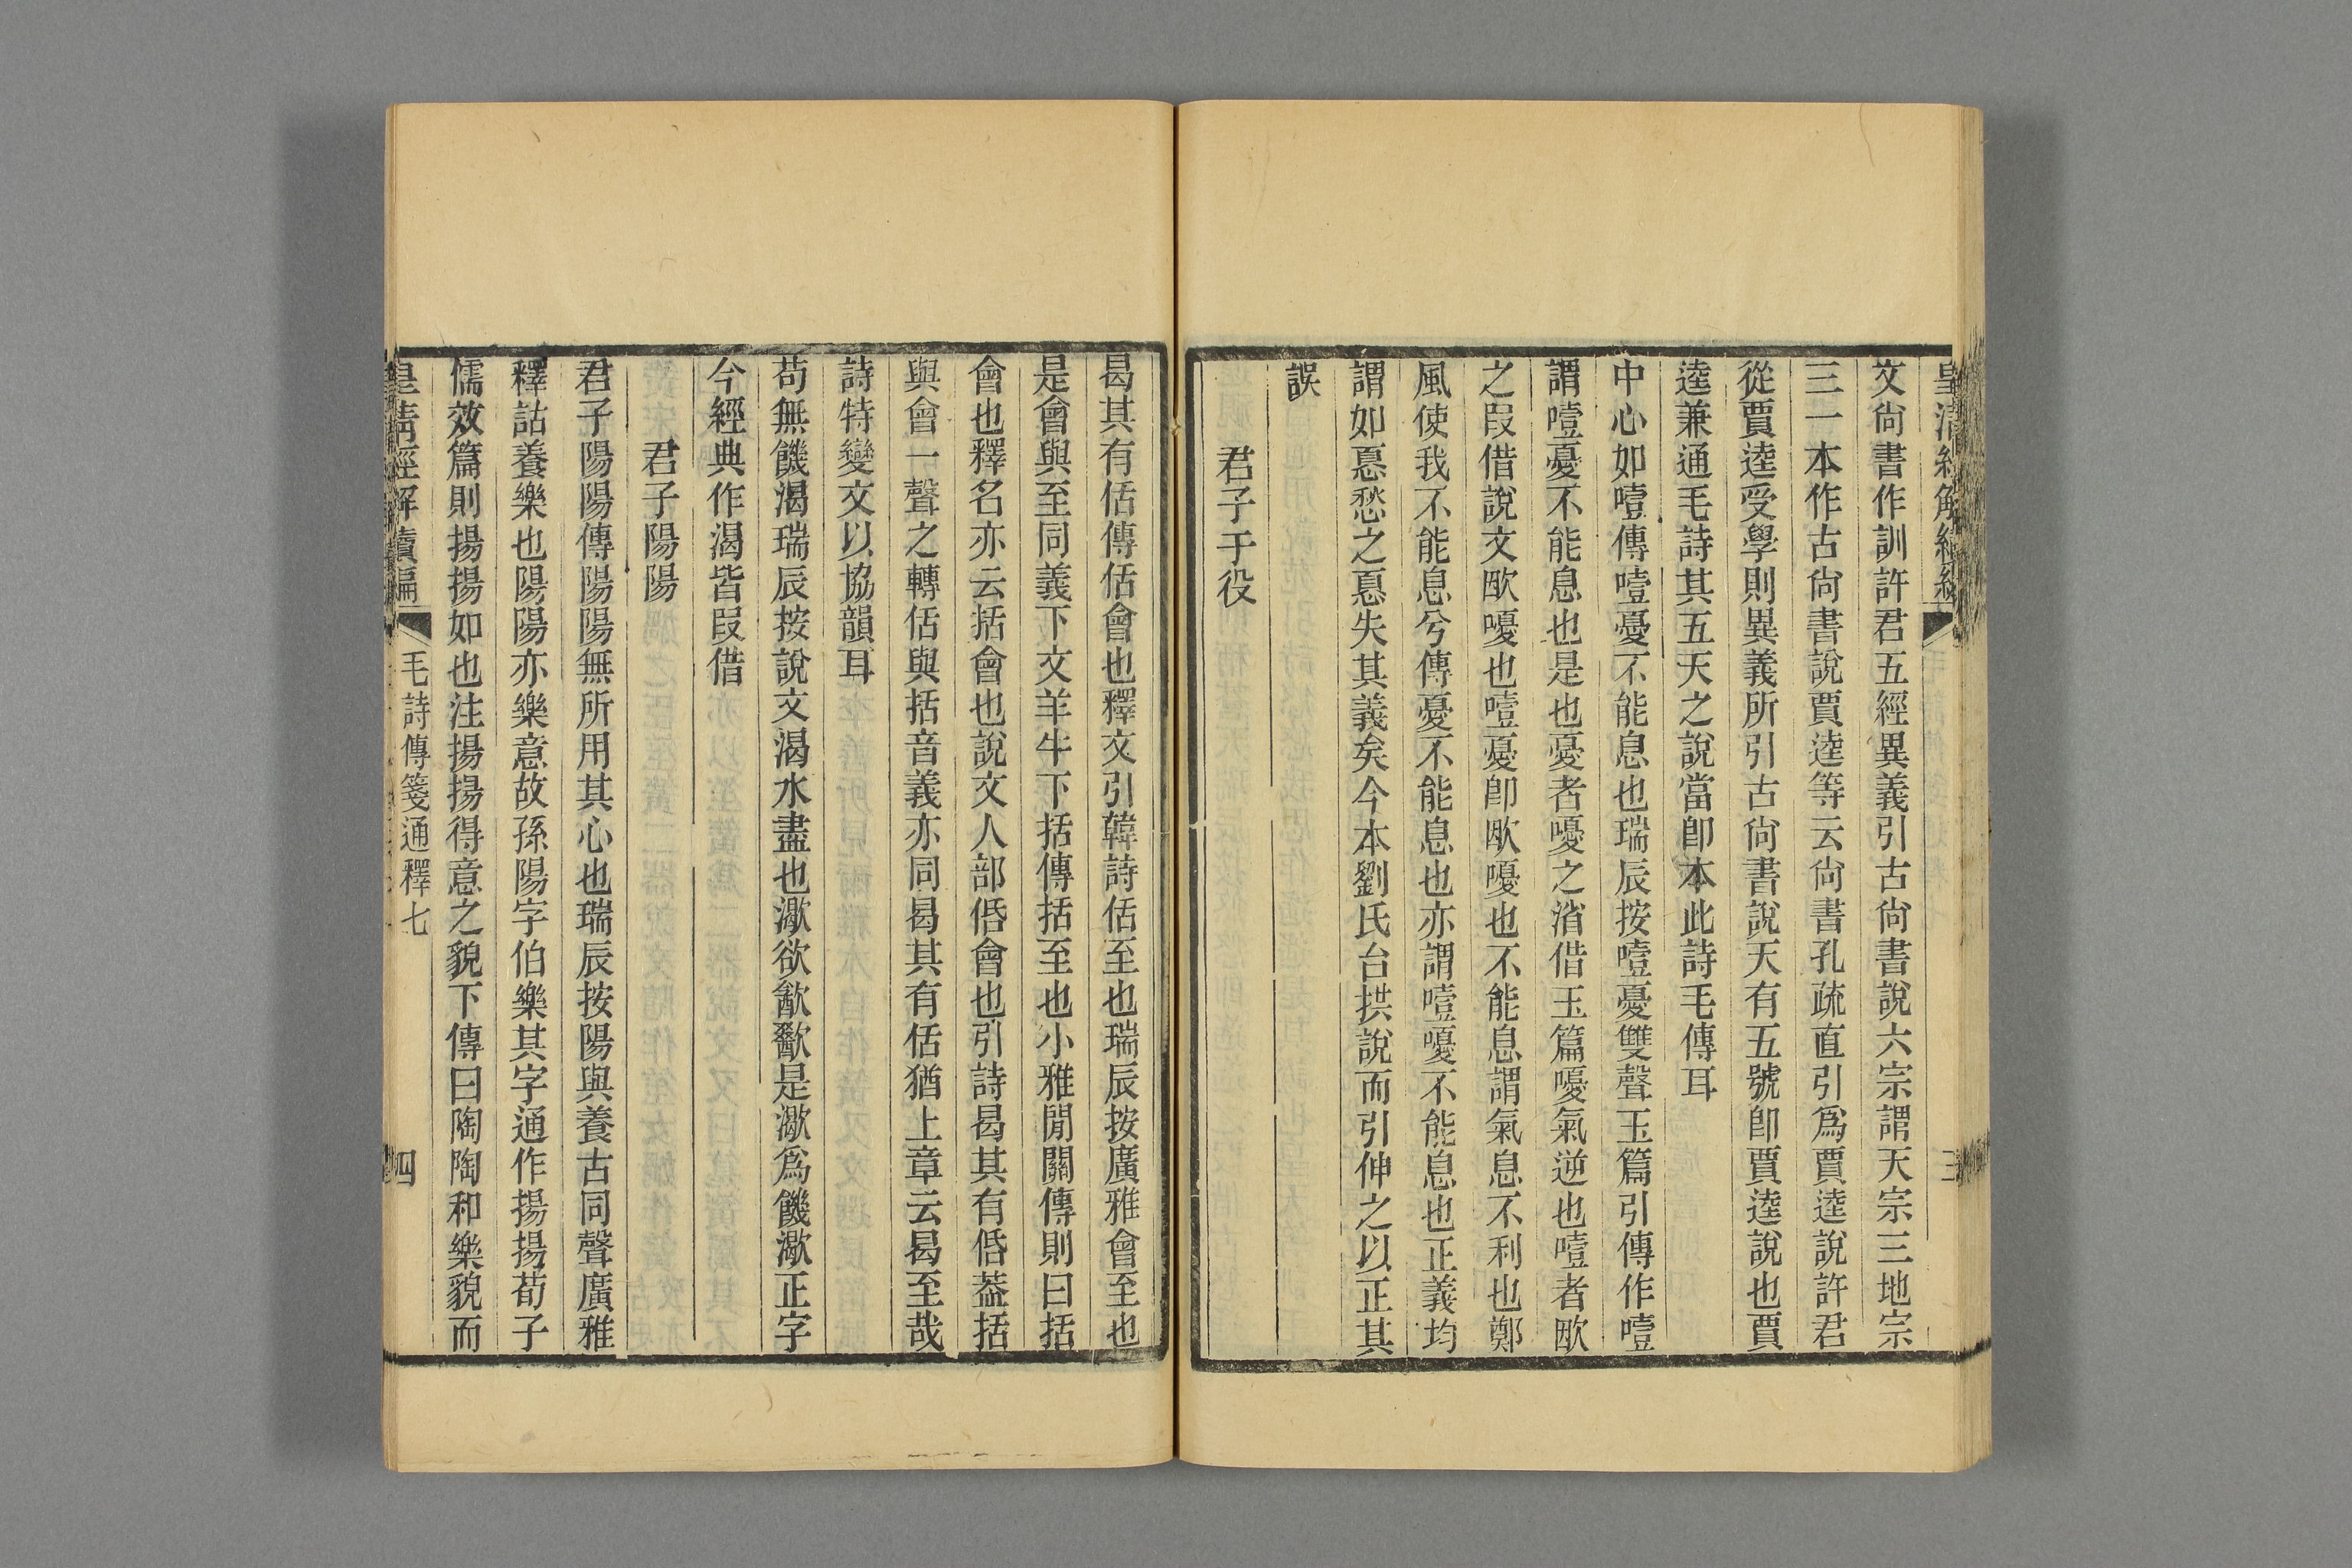 文尙書作訓許君五經異義引古尙書說六宗謂天宗三地宗
三一本作古尙書說賈逵等云尙書孔疏直引爲賈逵說許君
從賈逵受學則異義所引古尙書說天有五號卽賈逵說也賈
逵兼通毛詩其五天之說當卽本此詩毛傳耳
中心如噎傳噎憂不能息也瑞辰按噎憂雙聲玉篇引傳作噎
謂噎憂不能息也是也憂者嚘之消借玉篇嚘氣逆也噎者歐
之叚借說文歐嚘也噎憂卽歐嚘也不能息謂氣息不利也鄭
風使我不能息兮傳憂不能息也亦謂噎嚘不能息也正義均
謂如憂愁之憂失其義矣今本劉氏台拱說而引伸之以正其
誤
君子于役
曷其有佸傳佸會也釋文引韓詩佸至也瑞辰按廣雅會至也
是會與至同義下文羊牛下括傳括至也小雅閒關傳則曰括
會也釋名亦云括會也說文人部佸會也引詩曷其有佸葢括
與會一聲之轉佸與括音義亦同曷其有佸猶上章云曷至哉
詩特變文以協韻耳
苟無饑渴瑞辰按說文渴水盡也㵣欲歙歠是㵣爲饑㵣正字
今經典作渴皆叚借
君子陽陽
君子陽陽傳陽陽無所用其心也瑞辰按陽與養古同聲廣雅
釋詁養樂也陽陽亦樂意故孫陽字伯樂其字通作揚揚荀子
儒效篇則揚揚如也注揚揚得意之貌下傳曰陶陶和樂貌而
皇清經解續編
毛詩傳箋通釋七
四